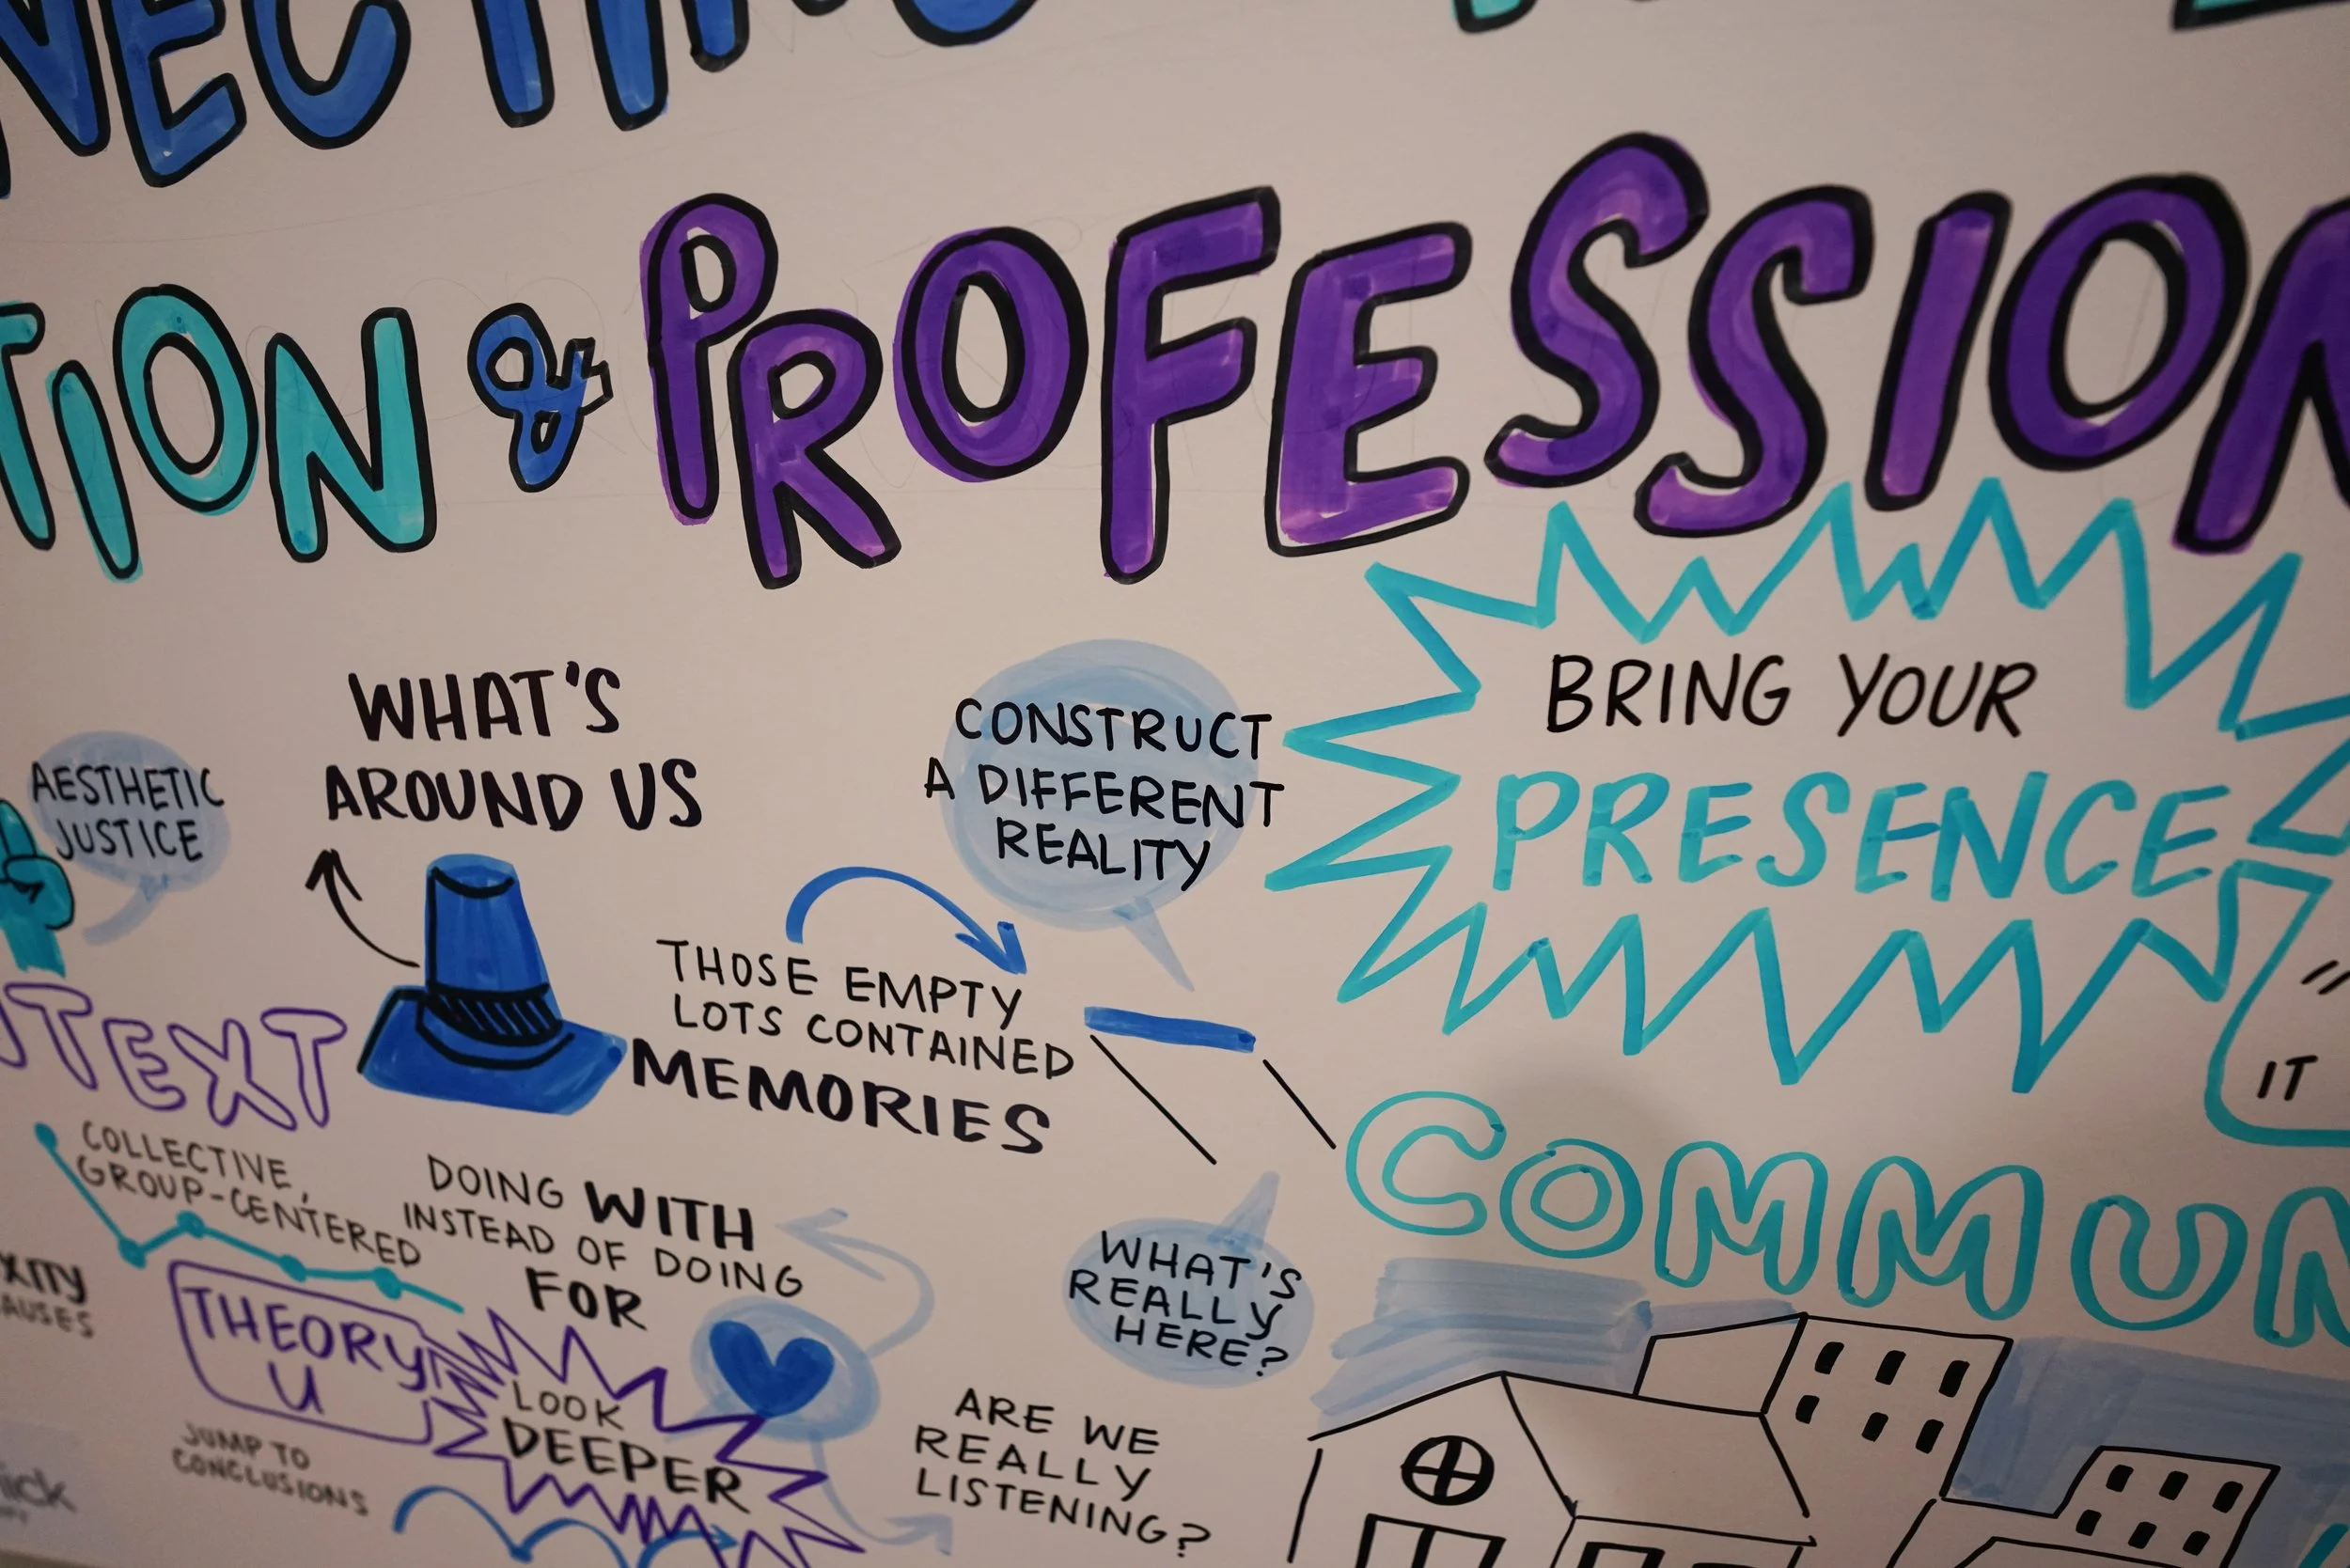 NECTIN
TION & PROFESSION
WHAT'S
AROUND US
AESTHETIC
JUSTICE
CONSTRUCT
A DIFFERENT
REALITY
BRING YOUR
PRESENCE
THOSE EMPTY
LOTS CONTAINED
MEMORIES
IT
TEXT
COLLECTIVE,
GROUP-CENTERED
DOING WITH
INSTEAD OF DOING
FOR
COMMUN
WHAT'S
REALLY
HERE?
XITY
AUSES
THEORY
U
LOOK
DEEPER
ARE WE
REALLY
LISTENING?
JUMP TO
CONCLUSIONS
lick